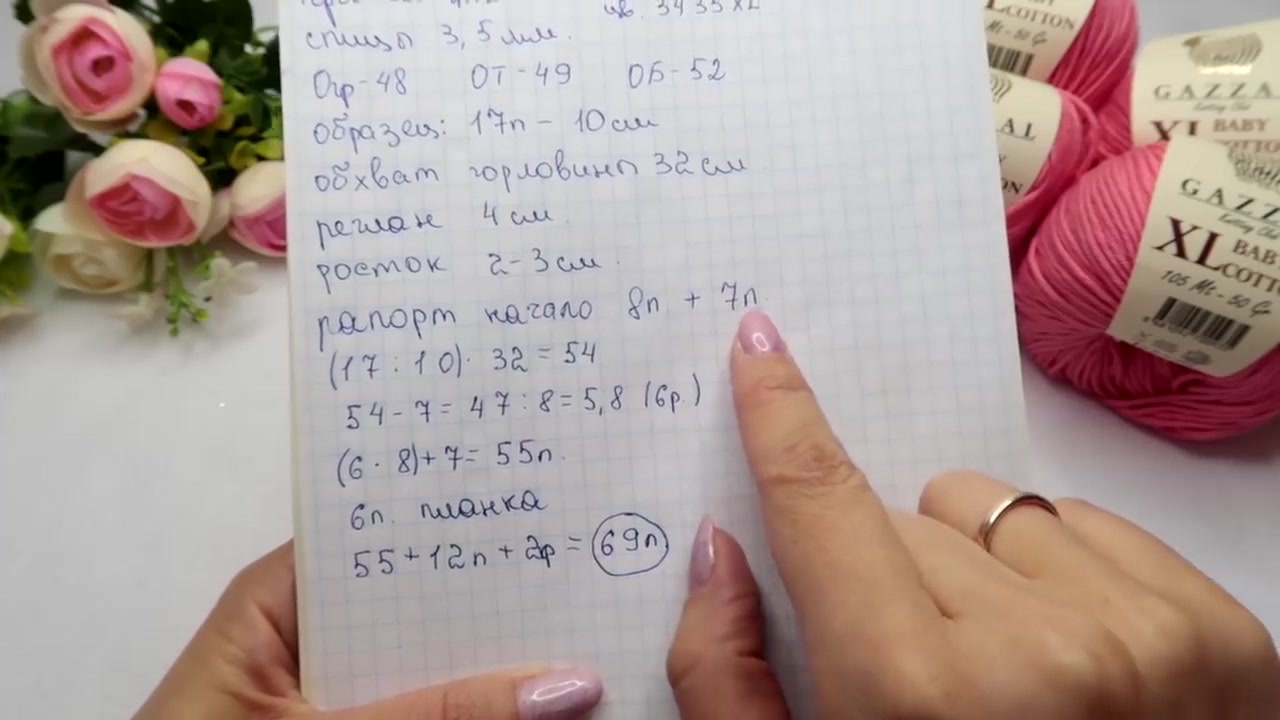 цв. 3435XL
спицы 3,5мм.
Огр-48 ОТ-49 ОБ-52
образец: 17п - 10см
обхват горловины 32см
реглан 4см.
росток 2-3см.
рапорт начало 8п + 7п.
(17:10)· 32 = 54
54-7=47:8=5,8 (6р.)
(6·8)+7=55п.
6п. планка
55+12п+2р=69п
COTTON
GAZZAL
XL BABY
GAZZAL
XL BABY
COTTON
105 Mt - 50 Gr